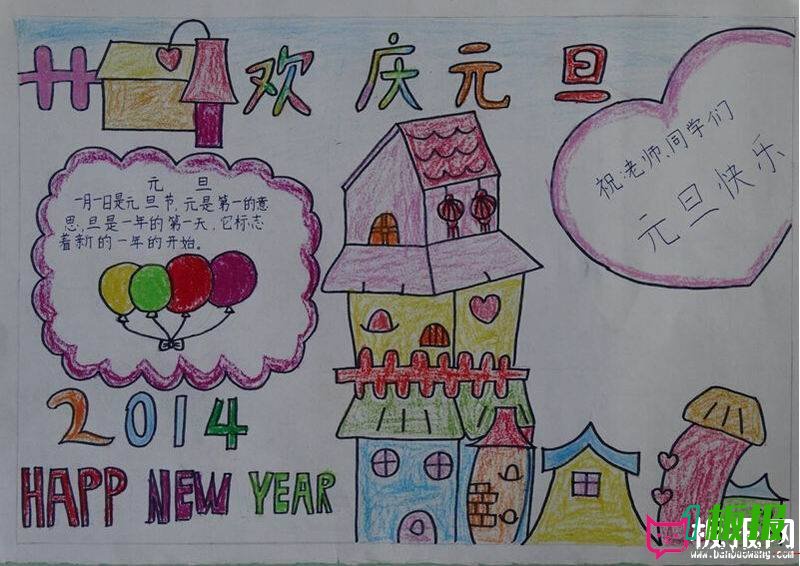 欢庆元旦
元 旦
一月一日是元旦节,元是第一的意
思,旦是一年的第一天,它标志
着新的一年的开始。
祝:老师、同学们
元旦快乐
2014
HAPP NEW YEAR
板报
板报网
www.banbaowang.com